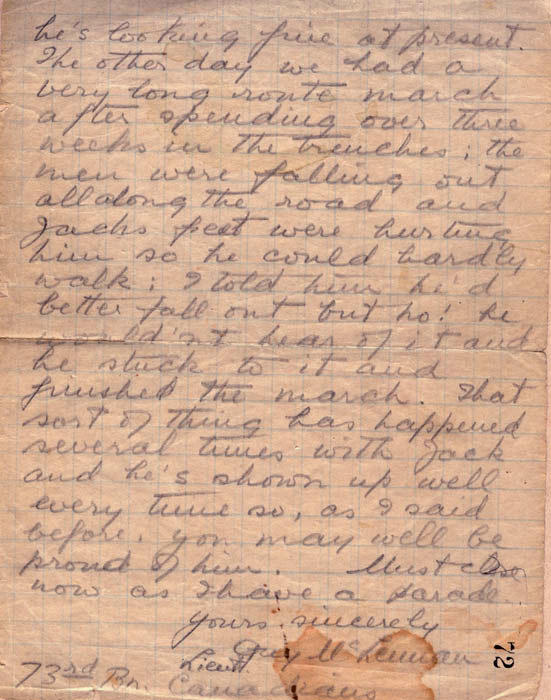 he's looking fine at present.
The other day we had a
very long route march
after spending over three
weeks in the trenches; the
men were falling out
all along the road and
Jacks feet were hurting
him so he could hardly
walk; I told him he'd
better fall out but no! he
would'nt hear of it and
he stuck to it and
finished the march. That
sort of thing has happened
several times with Jack
and he's shown up well
every time so, as I said
before, you may well be
proud of him. Must close
now as I have a parade.
Yours sincerely
Guy McLennan
Lieut.
73rd Bn. Canadians
72